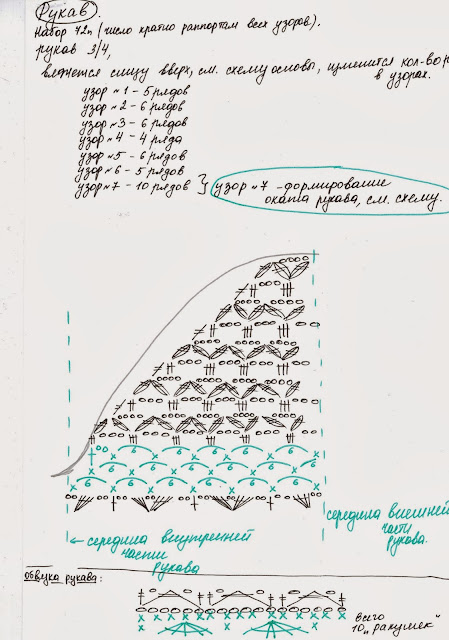 Рукав.
Набор 72п (число кратно раппортам всех узоров).
рукав 3/4,
вяжется снизу вверх, см. схему основы, изменится кол-во р
в узорах.
узор №1 - 5 рядов
узор №2 - 6 рядов
узор №3 - 6 рядов
узор №4 - 4 ряда
узор №5 - 6 рядов
узор №6 - 5 рядов
узор №7 - 10 рядов } узор №7 - формирование
оката рукава, см. схему.
6 6 6 6
6 6 6 6 6
6 6 6 6
середина внешней
части
рукава.
← середина внутренней
части
рукава
обвязка рукава:
6 6
всего
10 „ракушек"